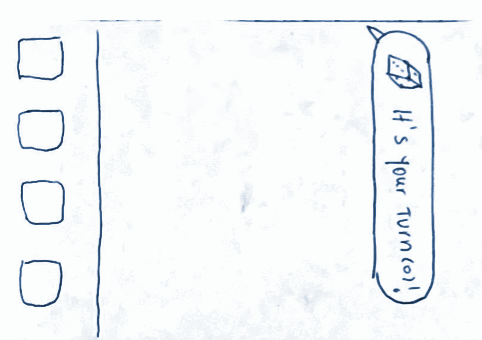 It's your Turn(o)!